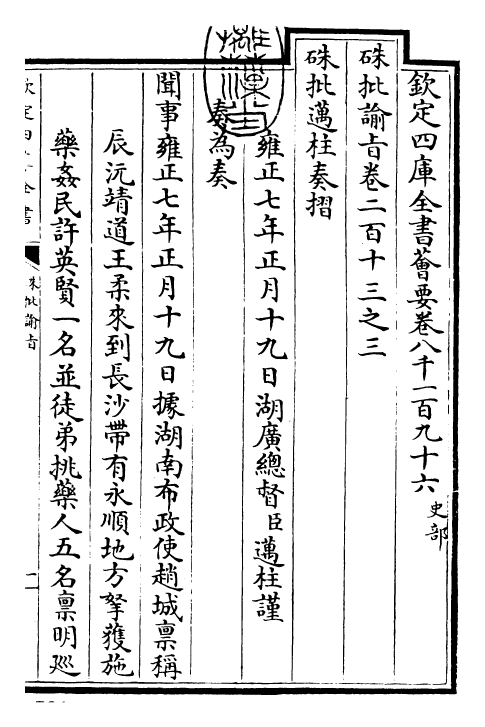 欽定四庫全書薈要卷八千一百九十六 史部
硃批諭旨卷二百十三之三
硃批邁柱奏摺
雍正七年正月十九日湖廣總督臣邁柱謹
奏為奏
聞事雍正七年正月十九日據湖南布政使趙城禀稱
辰沅靖道王柔來到長沙帶有永順地方拏獲施
藥姦民許英賢一名並徒弟挑藥人五名禀明廵
硃批諭旨
一